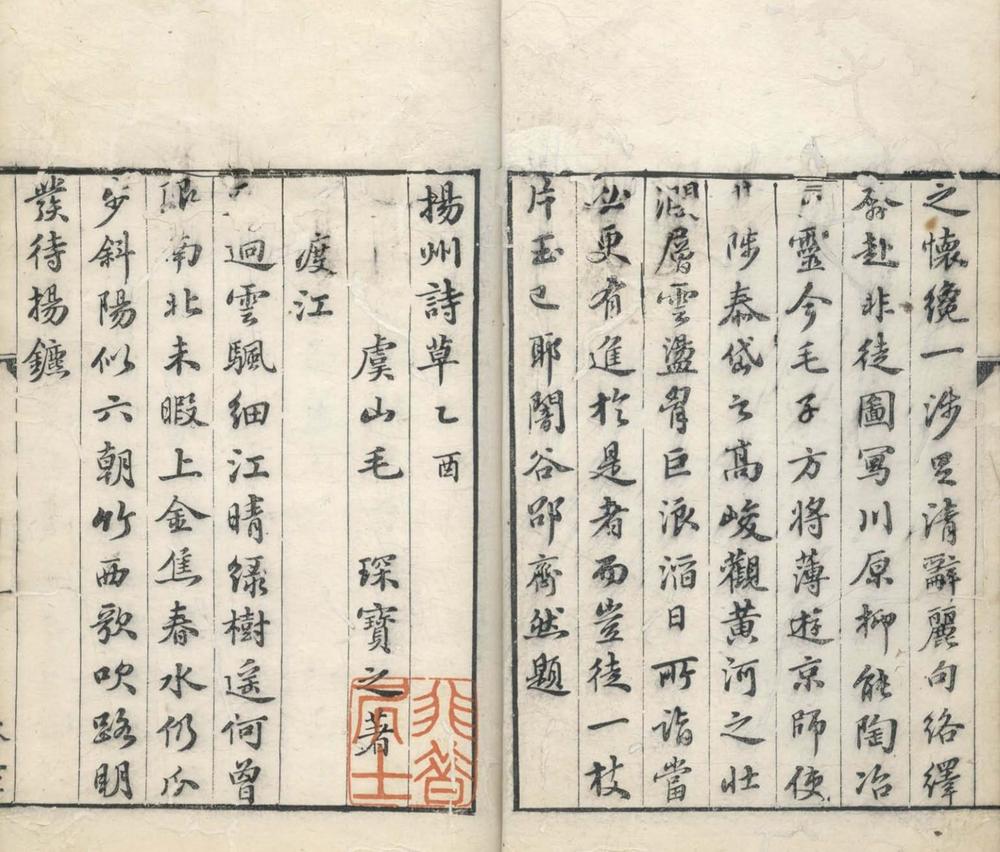 之懷纔一涉思清辭麗句絡繹
奔赴非徒圖寫川原抑能陶冶
靈今毛子方將薄遊京師使
陟泰岱之高峻觀黃河之壯
濶層雲盪胷巨浪滔日所詣當
必更有進於是者而豈徒一枝
片玉已耶闇谷邵齊然題
揚州詩草乙酉
虞山毛 琛寶之著
非昔居士
渡江
迥雲颿細江晴綠樹遥何曾
限南北未暇上金焦春水仍瓜
步斜陽似六朝竹西歌吹路明
發待揚鑣